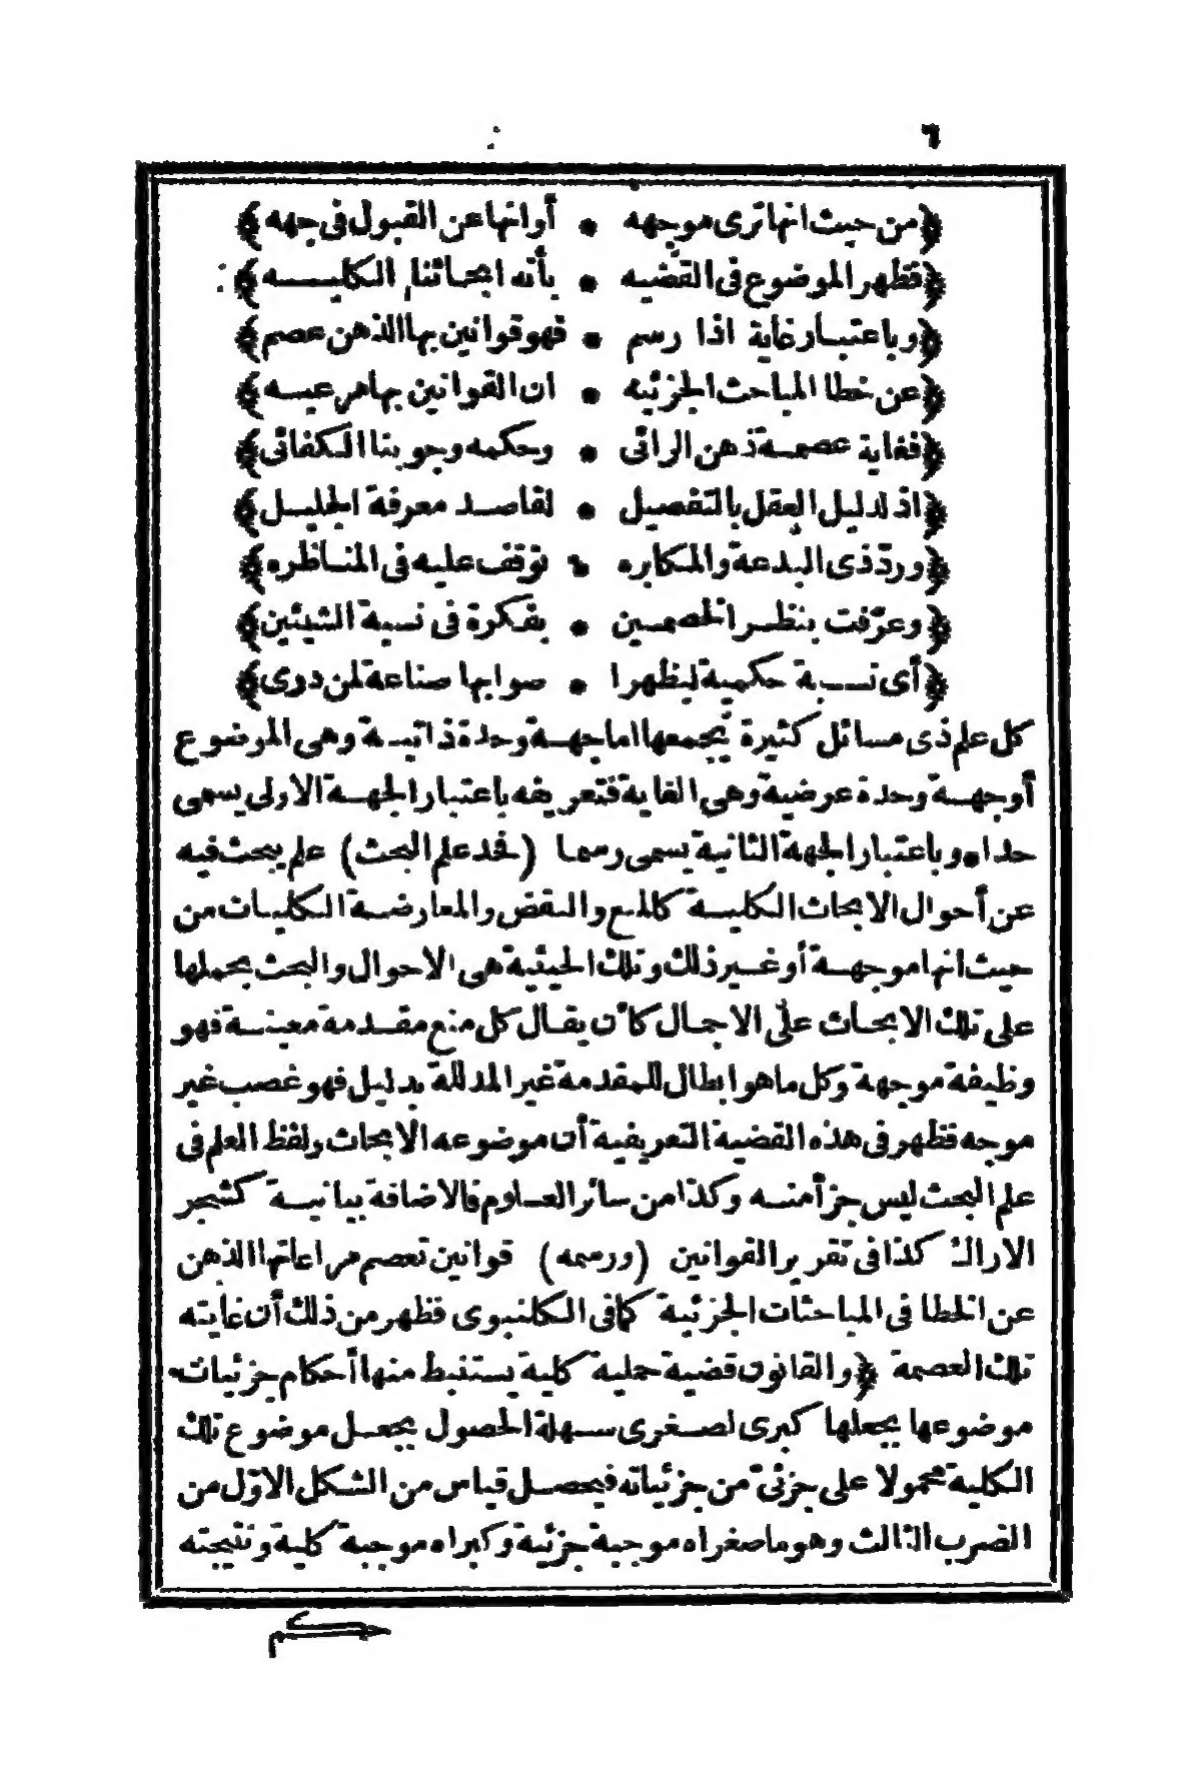 ٦
﴿من حيث انها ترى موجهه * أو انها عن القبول فى جهه﴾
﴿فظهر الموضوع فى القضيه * بأنه ابحاثنا الكليــه﴾
﴿وباعتبار غاية اذا رسم * فهو قوانين بها الذهن عصم﴾
﴿عن خطا المباحث الجزئيه * ان القوانين بها مرعيه﴾
﴿فغاية عصمة ذهن الرائى * وحكمه وجوبنا الكفائى﴾
﴿اذ لدليل العقل بالتفصيل * لقاصد معرفة الجليل﴾
﴿وردّ ذى البدعة والمكابره * توقف عليه فى المناظره﴾
﴿وعرّفت بنظر الخصمين * بفكرة فى نسبة الشيئين﴾
﴿أى نسبة حكمية ليظهرا * صوابها صناعة لمن درى﴾
كل علم ذى مسائل كثيرة يجمعها اما جهة وحدة ذاتية وهى الموضوع
أو جهة وحدة عرضية وهى الغاية فتعريفه باعتبار الجهة الاولى يسمى
حدا وباعتبار الجهة الثانية يسمى رسما (فحد علم البحث) علم يبحث فيه
عن أحوال الابحاث الكلية كالمنع والنقض والمعارضة الكليات من
حيث انها موجهة أو غير ذلك وتلك الحيثية هى الاحوال والبحث بحملها
على تلك الابحاث على الاجمال كأن يقال كل منع مقدمة معينة فهو
وظيفة موجهة وكل ما هو ابطال للمقدمة غير المدللة بدليل فهو غصب غير
موجه فظهر فى هذه القضية التعريفية أن موضوعه الابحاث ولفظ العلم فى
علم البحث ليس جزأ منه وكذا من سائر العلوم فالاضافة بيانية كشجر
الاراك كذا فى تقرير القوانين (ورسمه) قوانين تعصم مراعاتها الذهن
عن الخطا فى المباحثات الجزئية كما فى الكلنبوى فظهر من ذلك أن غايته
تلك العصمة ﴿والقانون قضية حملية كلية يستنبط منها أحكام جزئيات
موضوعها بجعلها كبرى لصغرى سهلة الحصول بجعل موضوع تلك
الكلية محمولا على جزئىّ من جزئياته فيحصل قياس من الشكل الاوّل من
الضرب الثالث وهو ما صغراه موجبة جزئية وكبراه موجبة كلية ونتيجته
حكم